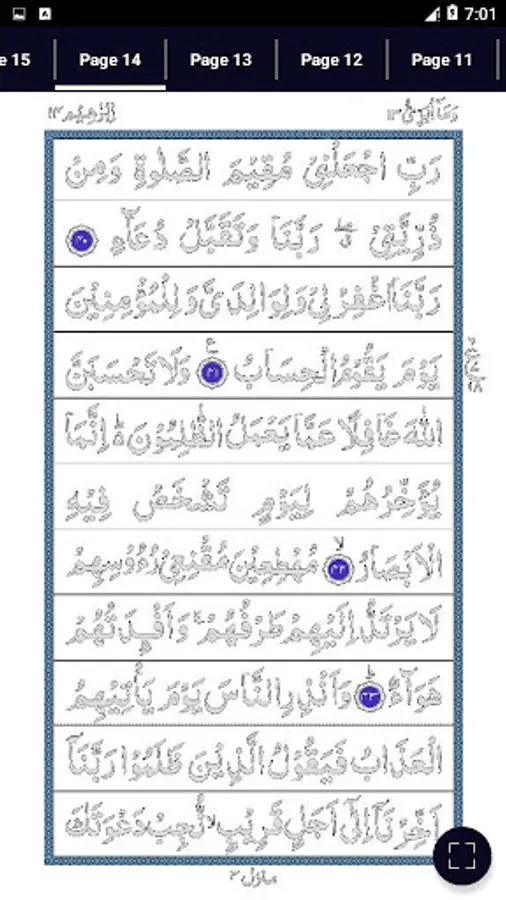 7:01
e 15 Page 14 Page 13 Page 12 Page 11
وما ابرئ ١٣ ابرهيم ١٤
رَبِّ اجْعَلْنِيْ مُقِيْمَ الصَّلٰوةِ وَمِنْ
ذُرِّيَّتِيْ ۖ رَبَّنَا وَتَقَبَّلْ دُعَآءِ ﴿٤٠﴾
رَبَّنَا اغْفِرْ لِيْ وَلِوَالِدَيَّ وَلِلْمُؤْمِنِيْنَ
يَوْمَ يَقُوْمُ الْحِسَابُ ﴿٤١﴾ وَلَا تَحْسَبَنَّ
اللّٰهَ غَافِلًا عَمَّا يَعْمَلُ الظّٰلِمُوْنَ ؕ اِنَّمَا
يُؤَخِّرُهُمْ لِيَوْمٍ تَشْخَصُ فِيْهِ
الْاَبْصَارُ ﴿٤٢﴾ مُهْطِعِيْنَ مُقْنِعِيْ رُءُوْسِهِمْ
لَا يَرْتَدُّ اِلَيْهِمْ طَرْفُهُمْ ۚ وَاَفْـِٕدَتُهُمْ
هَوَآءٌ ﴿٤٣﴾ وَاَنْذِرِ النَّاسَ يَوْمَ يَاْتِيْهِمُ
الْعَذَابُ فَيَقُوْلُ الَّذِيْنَ ظَلَمُوْا رَبَّنَآ
اَخِّرْنَآ اِلٰٓى اَجَلٍ قَرِيْبٍ ۙ نُّجِبْ دَعْوَتَكَ
منزل ٣